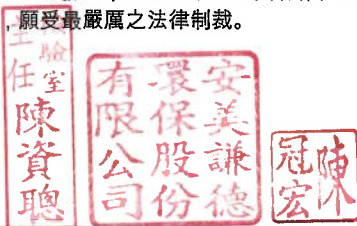 ，願受最嚴厲之法律制裁。
檢驗室
主任
陳資聰
安美謙德
環保股份
有限公司
陳
冠宏